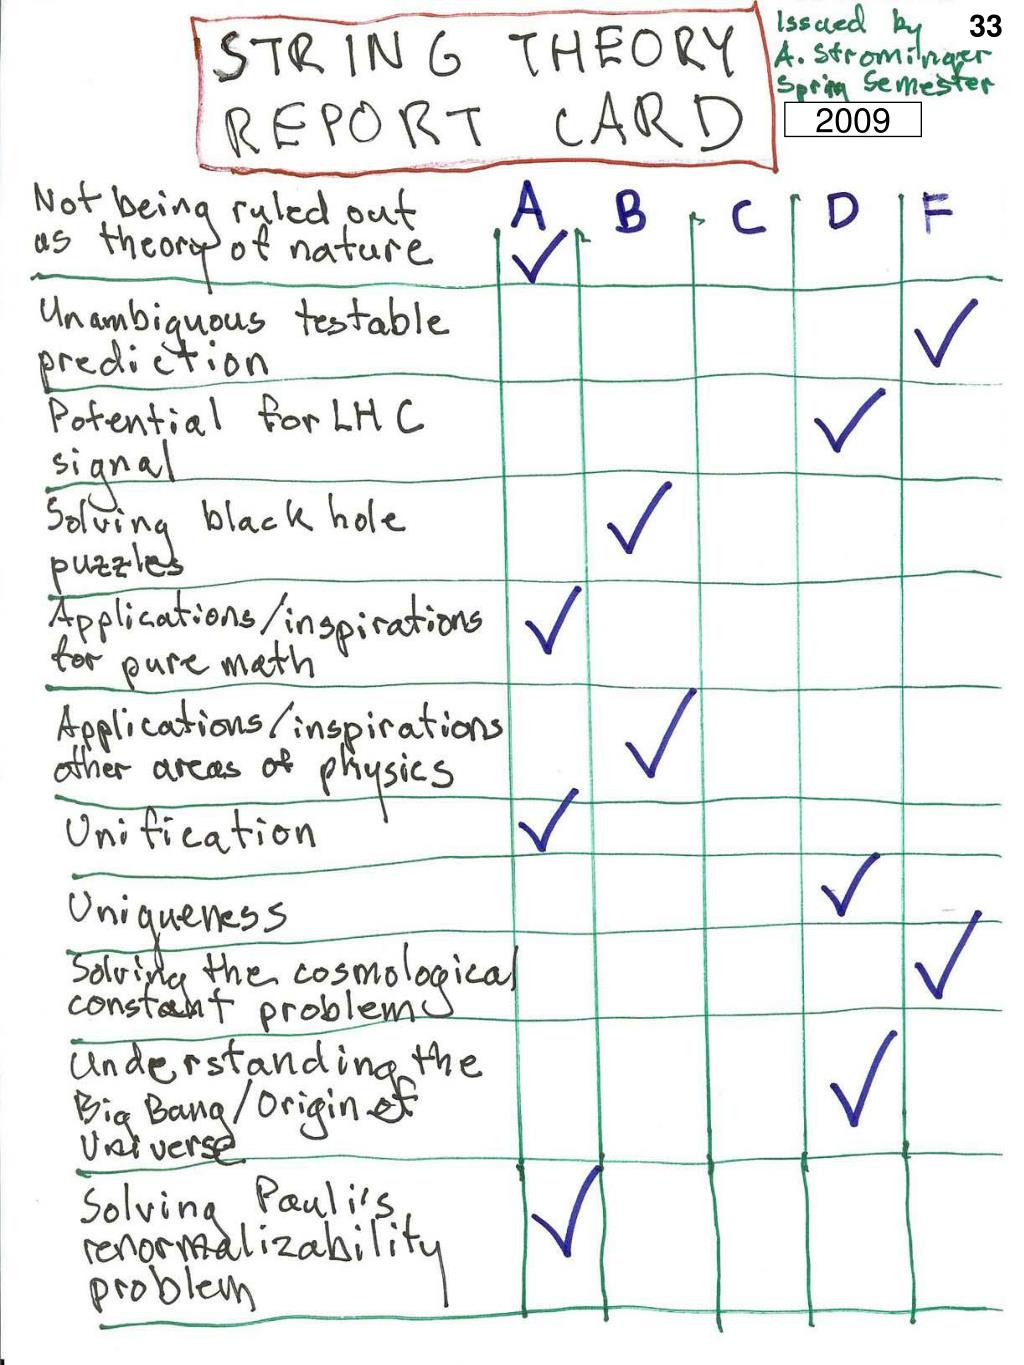 STRING THEORY
REPORT CARD
Issued by
A. Strominger
Spring Semester
2009
33
A B C D F
Not being ruled out
as theory of nature
Unambiguous testable
prediction
Potential for LHC
signal
Solving black hole
puzzles
Applications/inspirations
for pure math
Applications/inspirations
other areas of physics
Unification
Uniqueness
Solving the cosmological
constant problem
Understanding the
Big Bang/Origin of
Universe
Solving Pauli's
renormalizability
problem